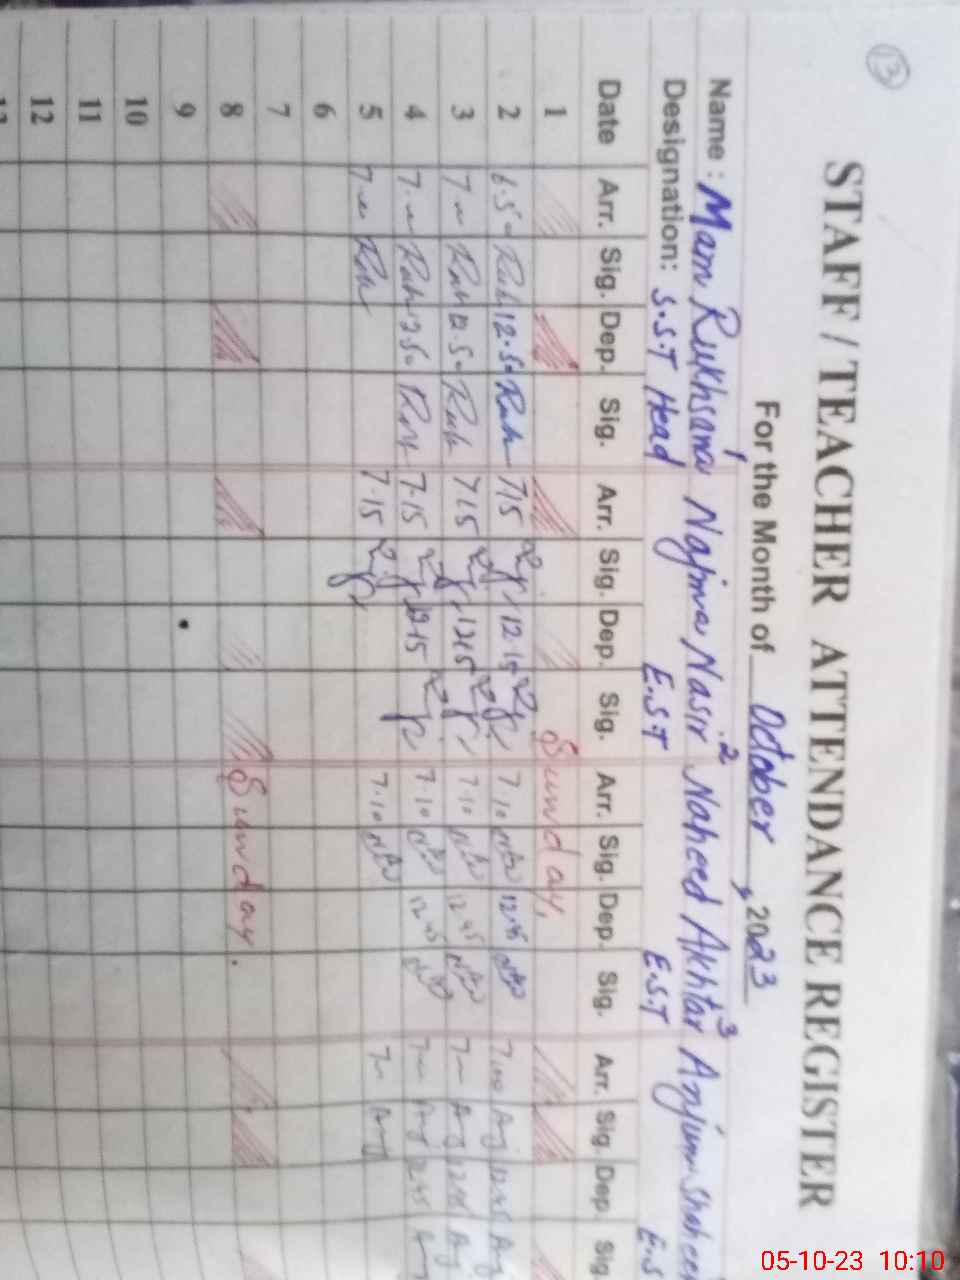 13
STAFF / TEACHER ATTENDANCE REGISTER
For the Month of October, 2023
Name : Mam Rukhsana 1 Najma Nasir 2 Naheed Akhtar 3 Anjum Shaheen
Designation: S.S.T Head E.S.T E.S.T E.S
Date Arr. Sig. Dep. Sig. Arr. Sig. Dep. Sig. Arr. Sig. Dep. Sig. Arr. Sig. Dep. Sig
1 Sunday,
2 6.50 Ruh 12.50 Ruh 7.15 12.15 7.10 12.45 7.00 Anj 12.45 Anj
3 7 Ruh 12.50 Ruh 7.15 12.15 7.10 12.45 7 Anj 12.45 Anj
4 7 Ruh 12.50 Ruh 7.15 12.15 7.10 12.45 7 Anj 12.45
5 7 Ruh 7.15 7.10 7 Anj
6
7
8 Sunday.
9
10
11
12
05-10-23 10:10